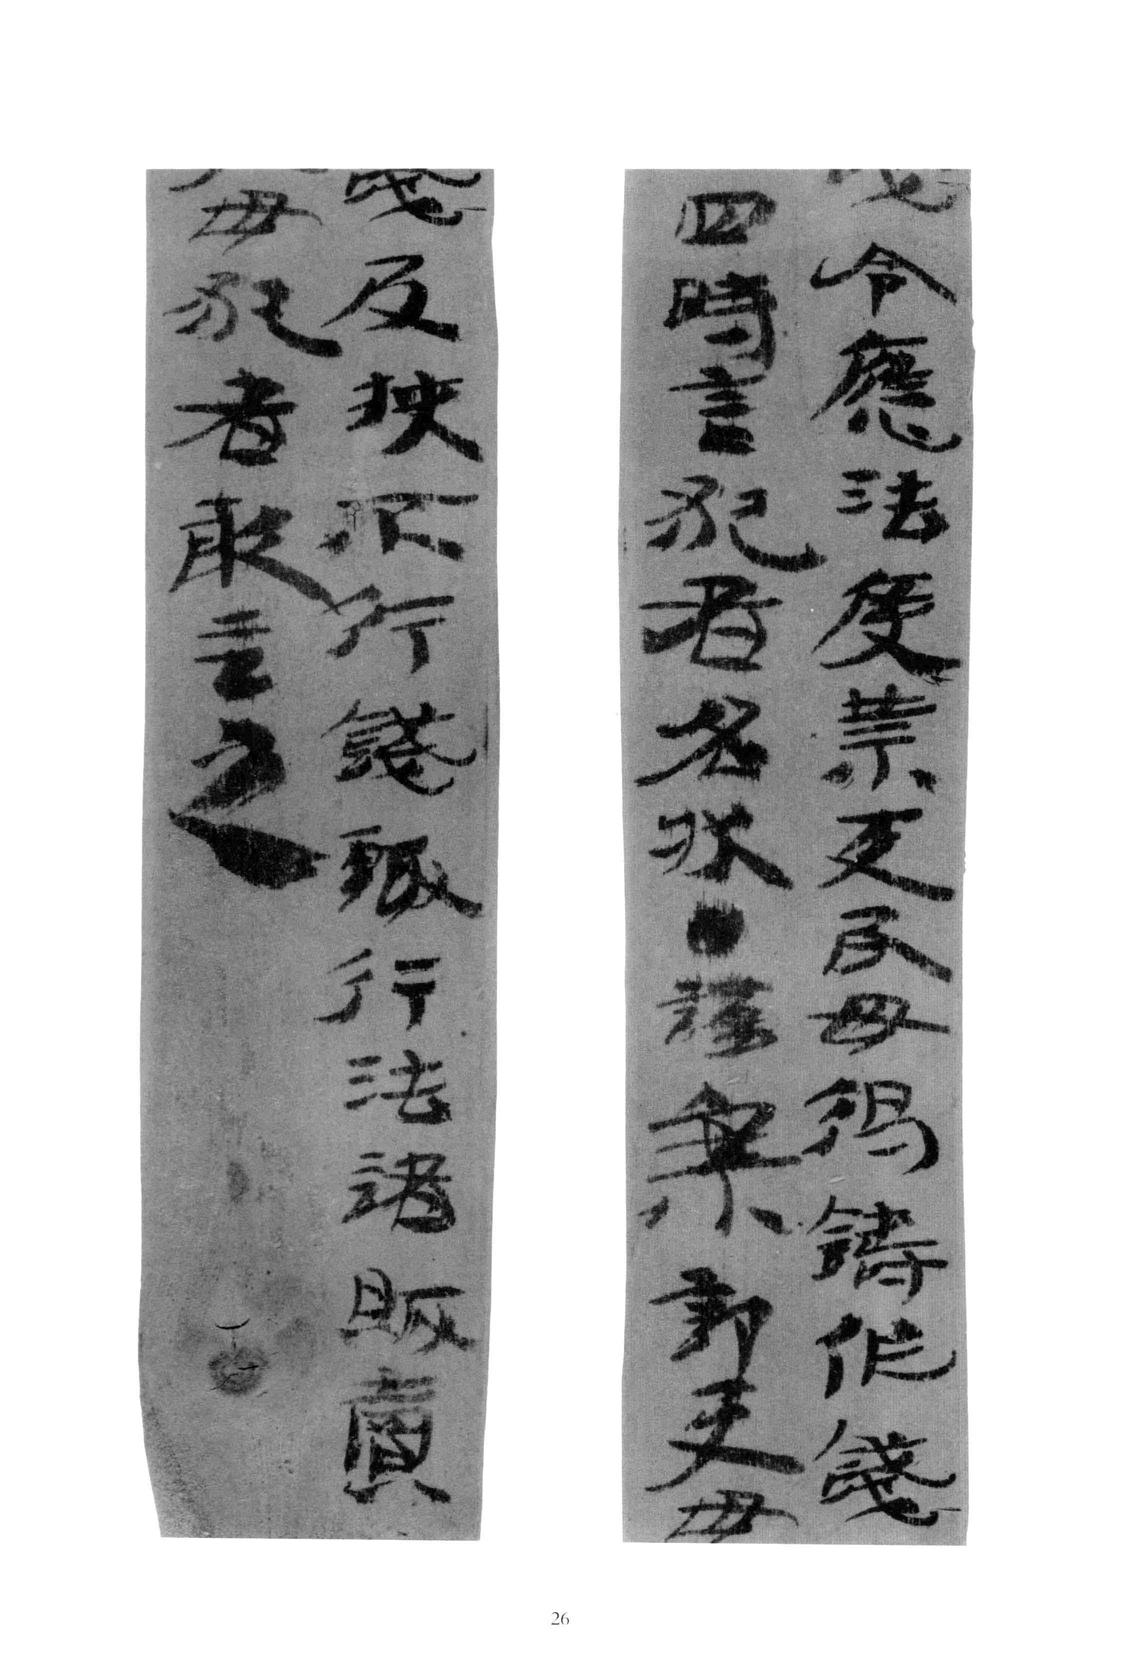 令應法度禁吏民毋得鑄作錢
四時言犯者名狀●謹案部吏毋
錢及挾不行錢輒行法諸販賣
毋犯者敢言之
26